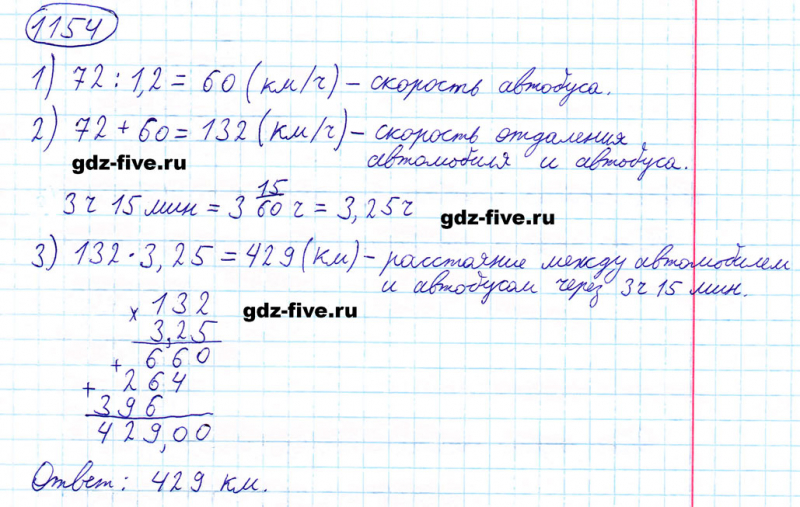 1154
1) 72 : 1,2 = 60 (км/ч) – скорость автобуса.
2) 72 + 60 = 132 (км/ч) – скорость отдаления
автомобиля и автобуса.
gdz-five.ru
3 ч 15 мин = 3 15/60 ч = 3,25 ч
gdz-five.ru
3) 132 · 3,25 = 429 (км) – расстояние между автомобилем
и автобусом через 3 ч 15 мин.
× 132
gdz-five.ru
3,25
+ 660
+ 264
396
429,00
Ответ: 429 км.